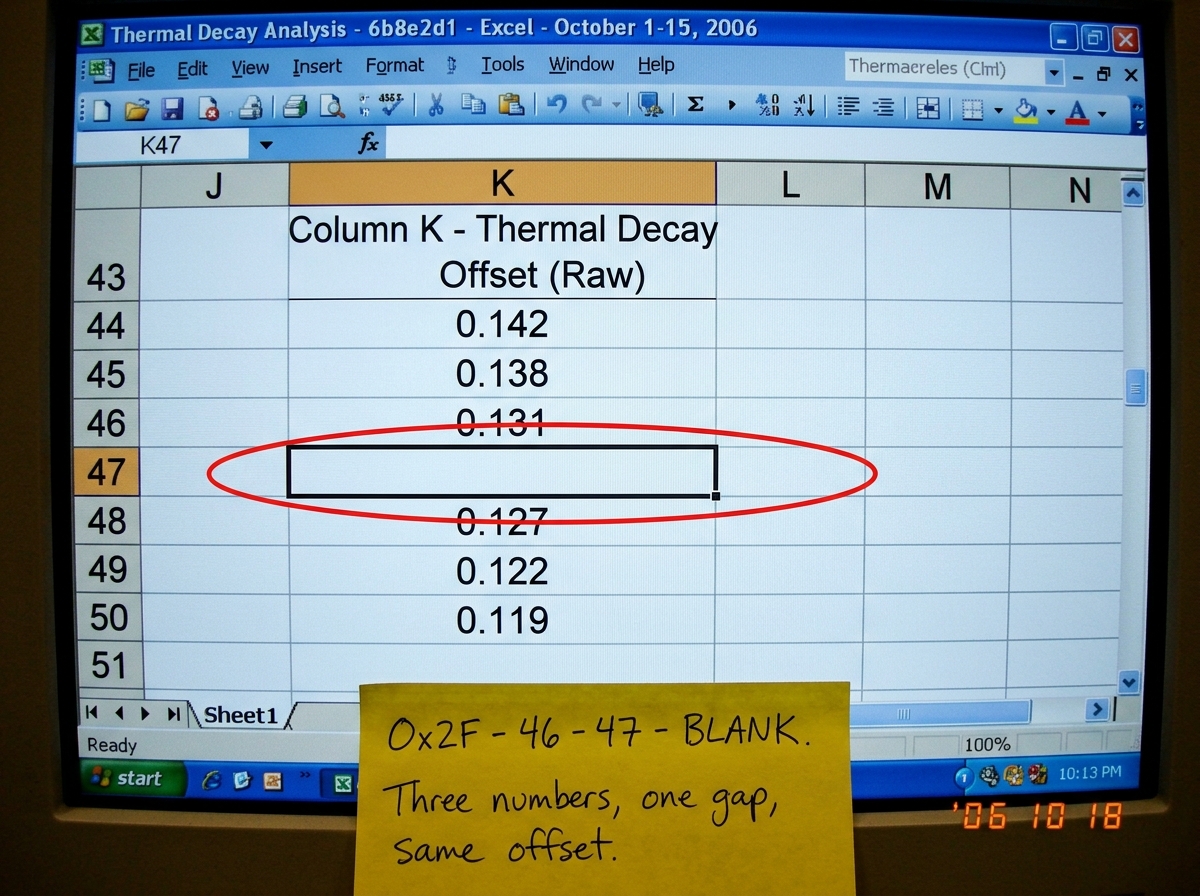 Thermal Decay Analysis - 6b8e2d1 - Excel - October 1-15, 2006
File Edit View Insert Format Tools Window Help
Thermacreles (Clml)
K47
fx
J K L M N
Column K - Thermal Decay
43 Offset (Raw)
44 0.142
45 0.138
46 0.131
47
48 0.127
49 0.122
50 0.119
51
Sheet1
Ready
100%
start
10:13 PM
'06 10 18
0x2F - 46 - 47 - BLANK.
Three numbers, one gap,
same offset.